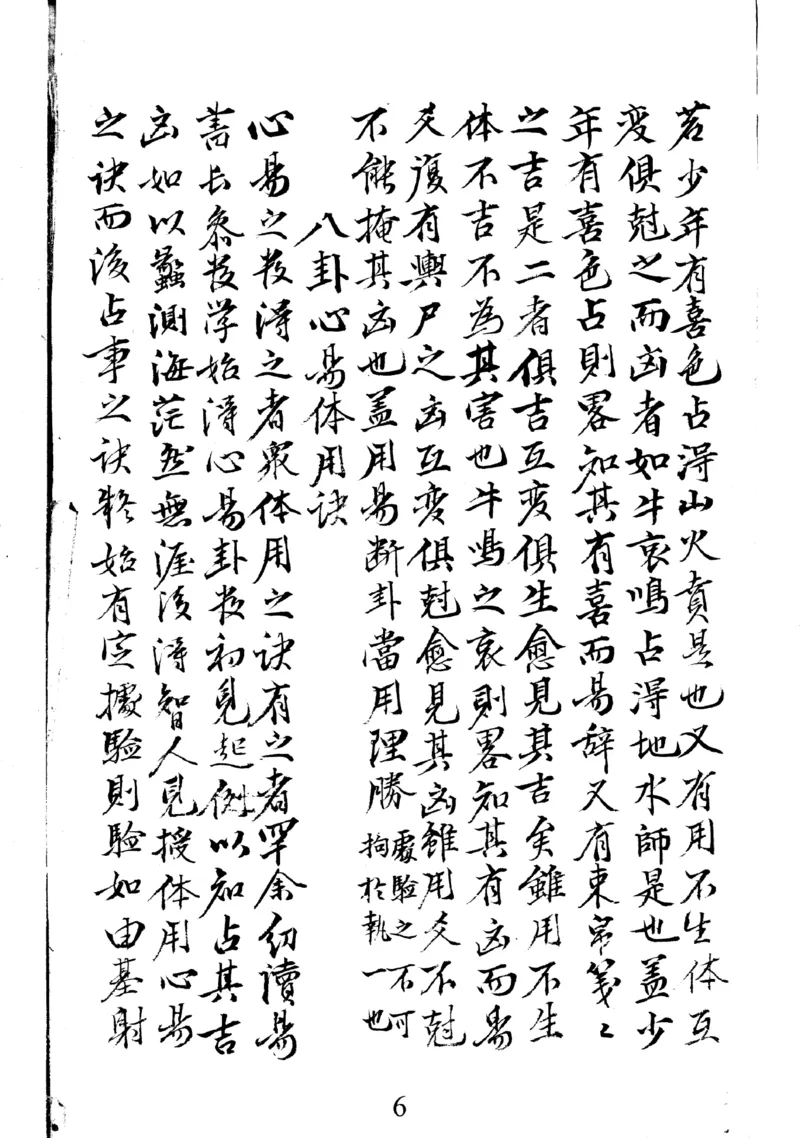 若少年有喜色占得山火賁是也又有用不生体互
变俱尅之而凶者如牛哀鳴占得地水師是也盖少
年有喜色占則畧知其有喜而易辞又有束帛戔〻
之吉是二者俱吉互变俱生愈見其吉矣雖用不生
体不吉不為其害也牛鳴之哀則畧知其有凶而易
爻復有輿尸之凶互变俱尅愈見其凶雖用爻不尅
不能掩其凶也盖用易断卦當用理勝處验之不可
拘於執一也
八卦心易体用訣
心易之数得之者衆体用之诀有之者罕余幼讀易
書长参数学始得心易卦数初見起例以知占其吉
凶如以蠡测海茫然無涯後得智人見授体用心易
之诀而後占事之诀终始有定據验則验如由基射
6